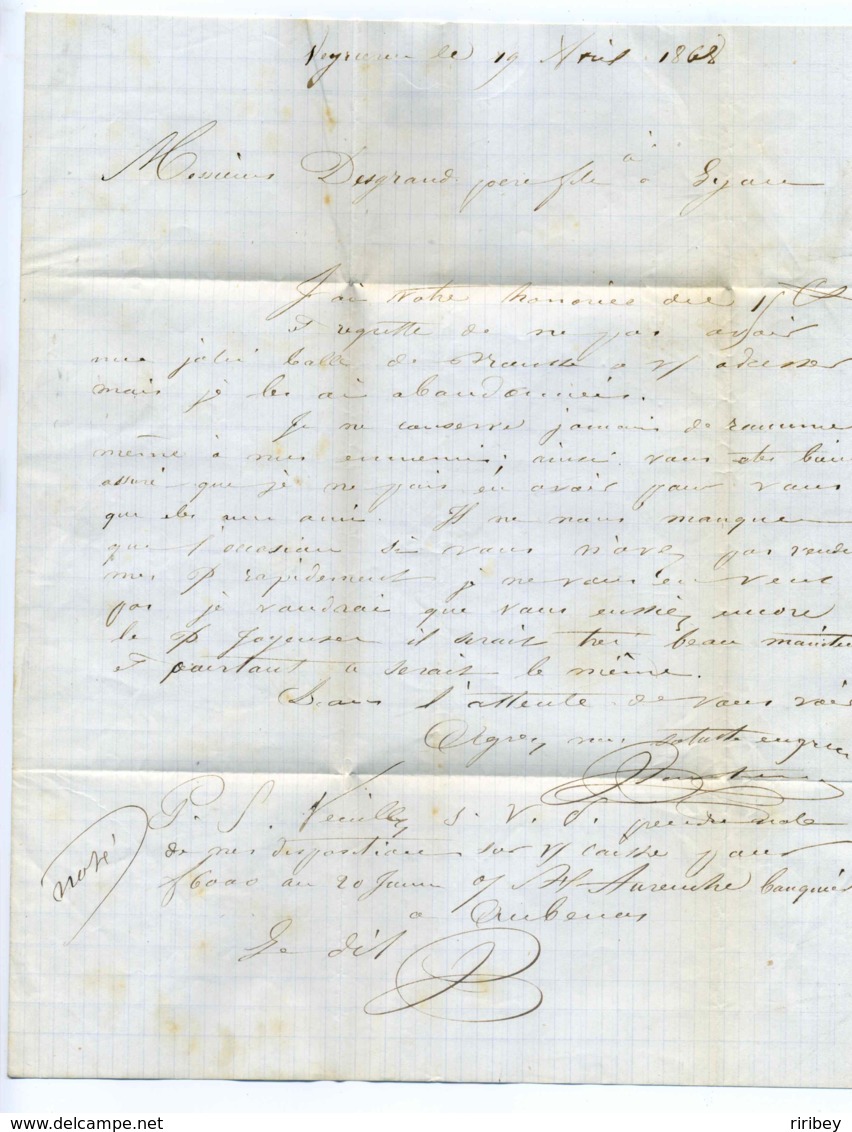 le 19 Avril 1868
Messieurs Desgrand pere fils a Lyon
J'ai votre honorée du 15 Ct
et regrette de ne pas avoir
une jolie balle de a v/ adresser
mais je les ai abandonnées.
Je ne conserve jamais de rancune
même à mes ennemis, ainsi vous etes bien
assuré que je ne puis en avoir pour vous
que etes mon ami. Il ne nous manque
que l'occasion si vous n'avez pas vendu
mes rapidement je ne vous en veux
pas je voudrai que vous eussiez encore
le Joyeuse il serait tres beau
et pourtant a serait le même.
Dans l'attente de vous voir
Agreez mes
P. S. Veuillez s. v. p. prendre note
de mes dispositions sur v/ caisse pour
noté
f 6000 au 20 o/ Aurenche banquier
a Aubenas
Le dit
riribey